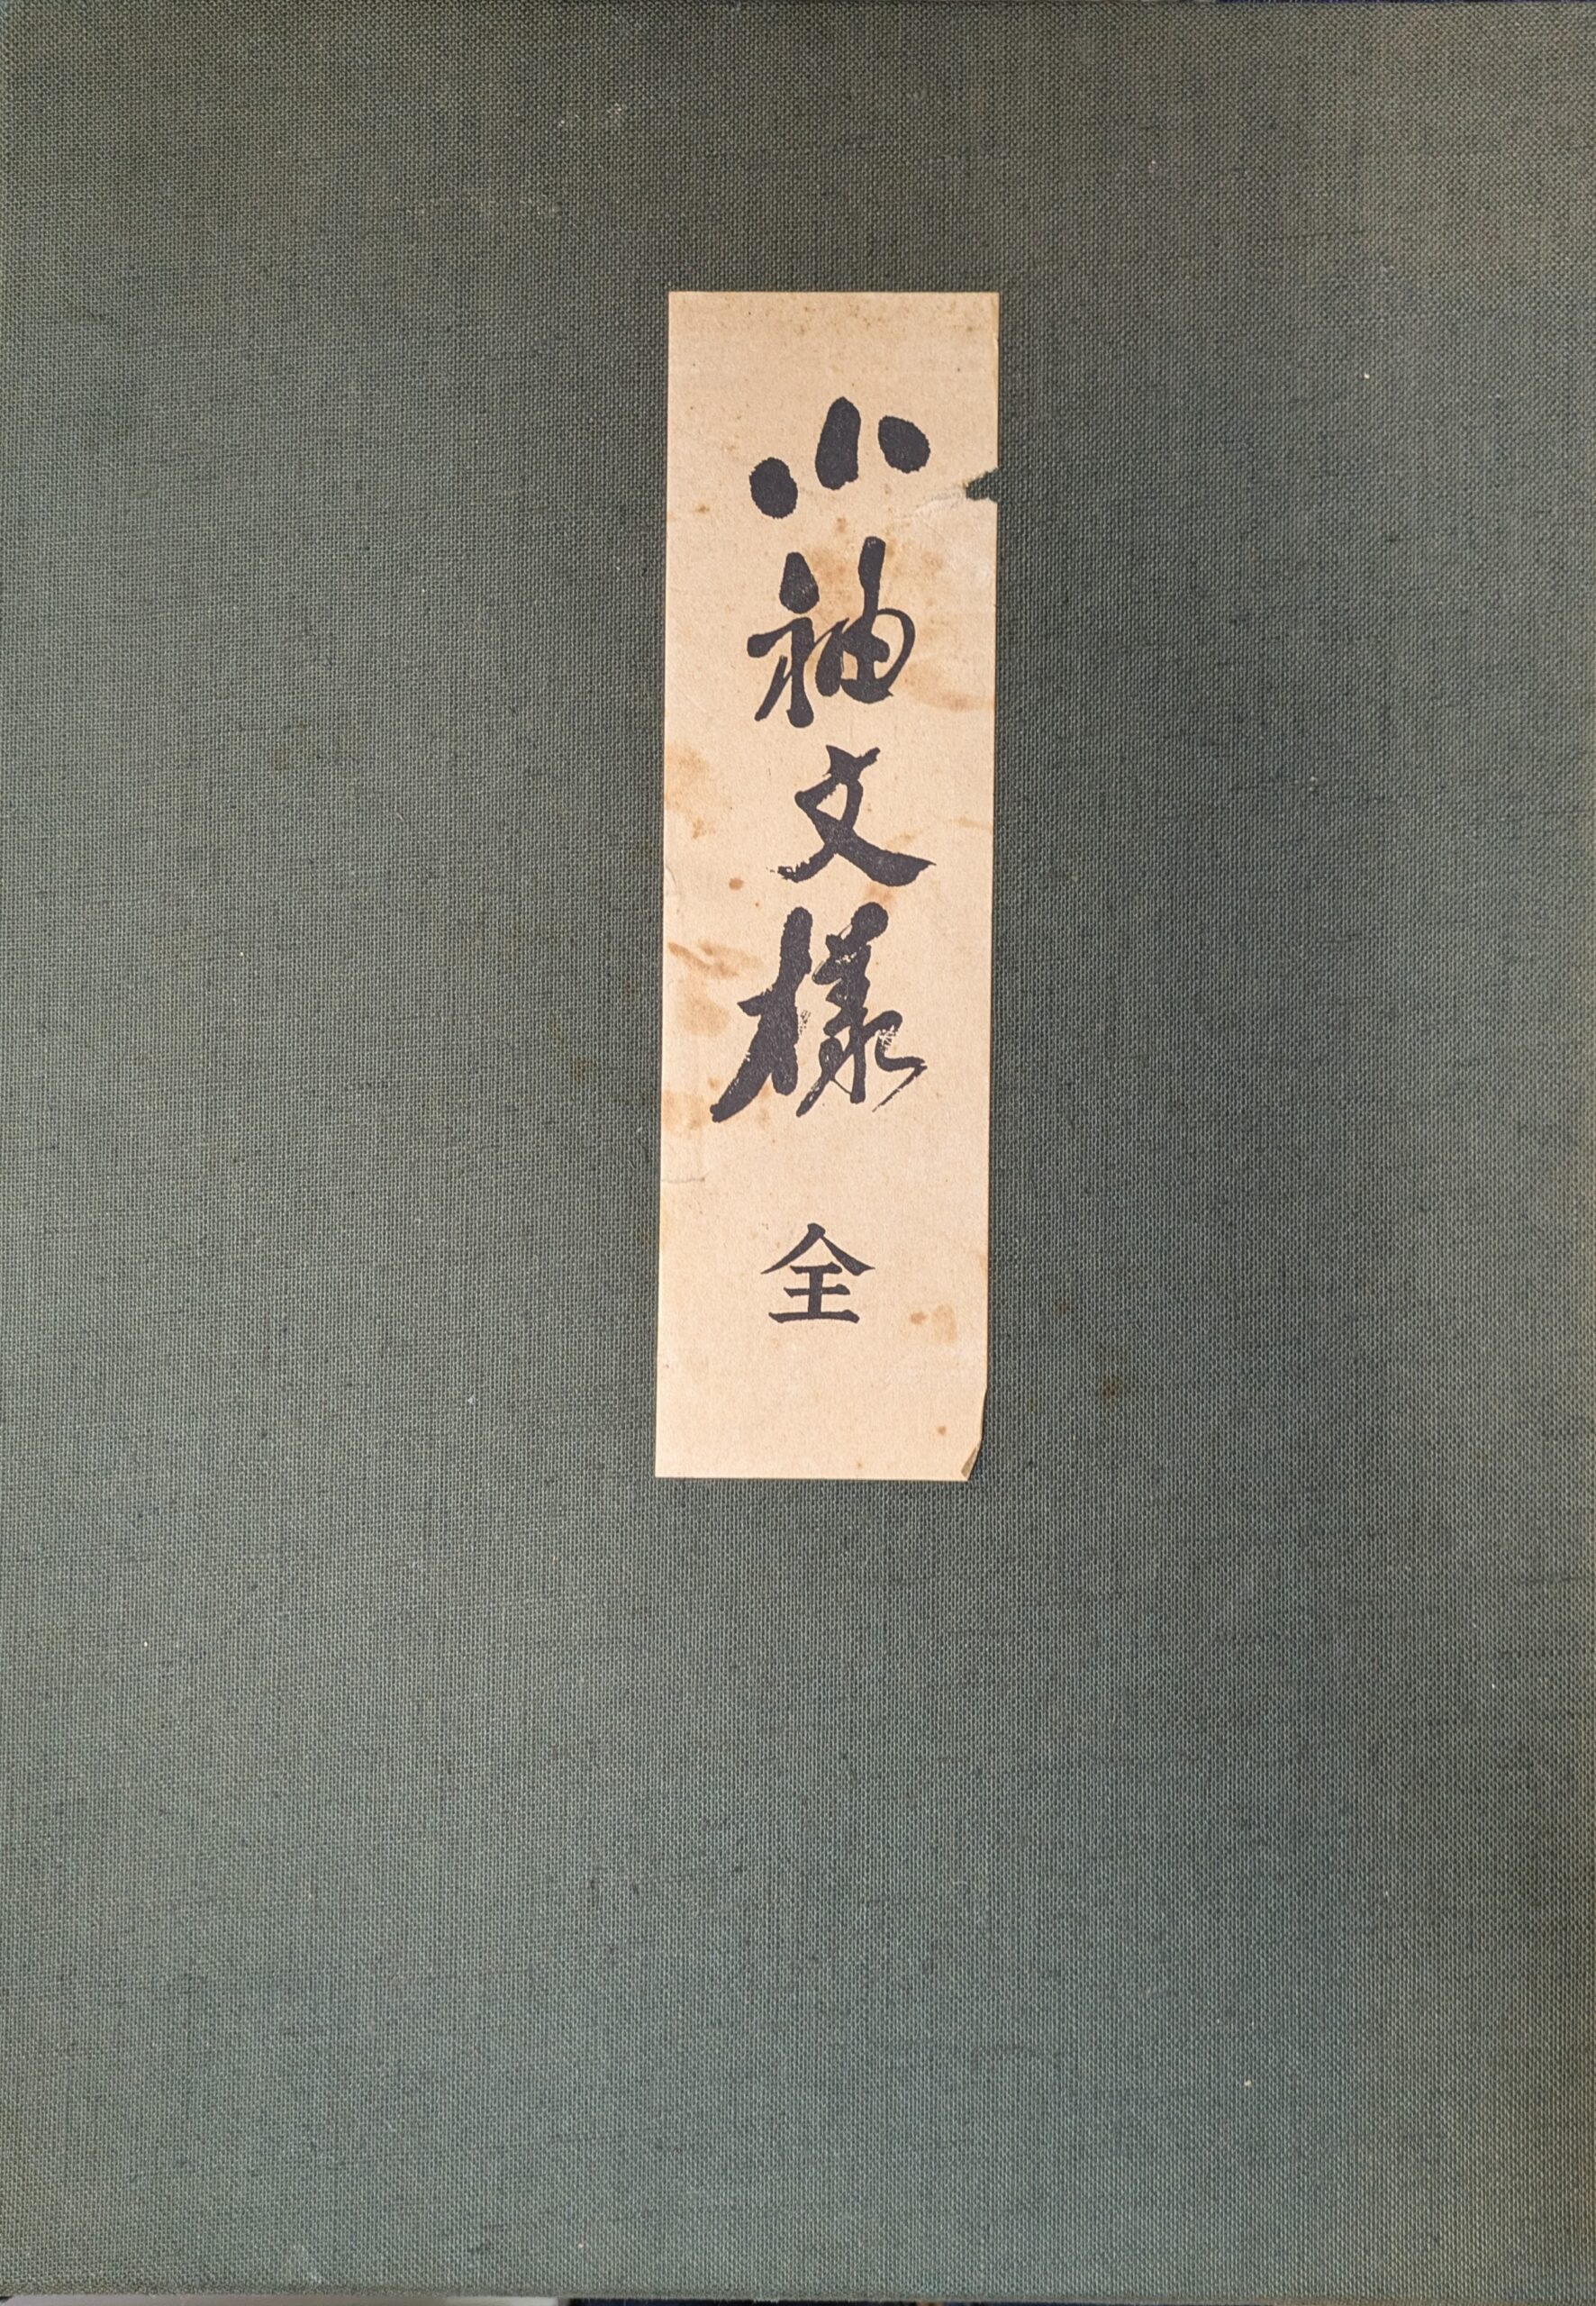 小袖文様 全